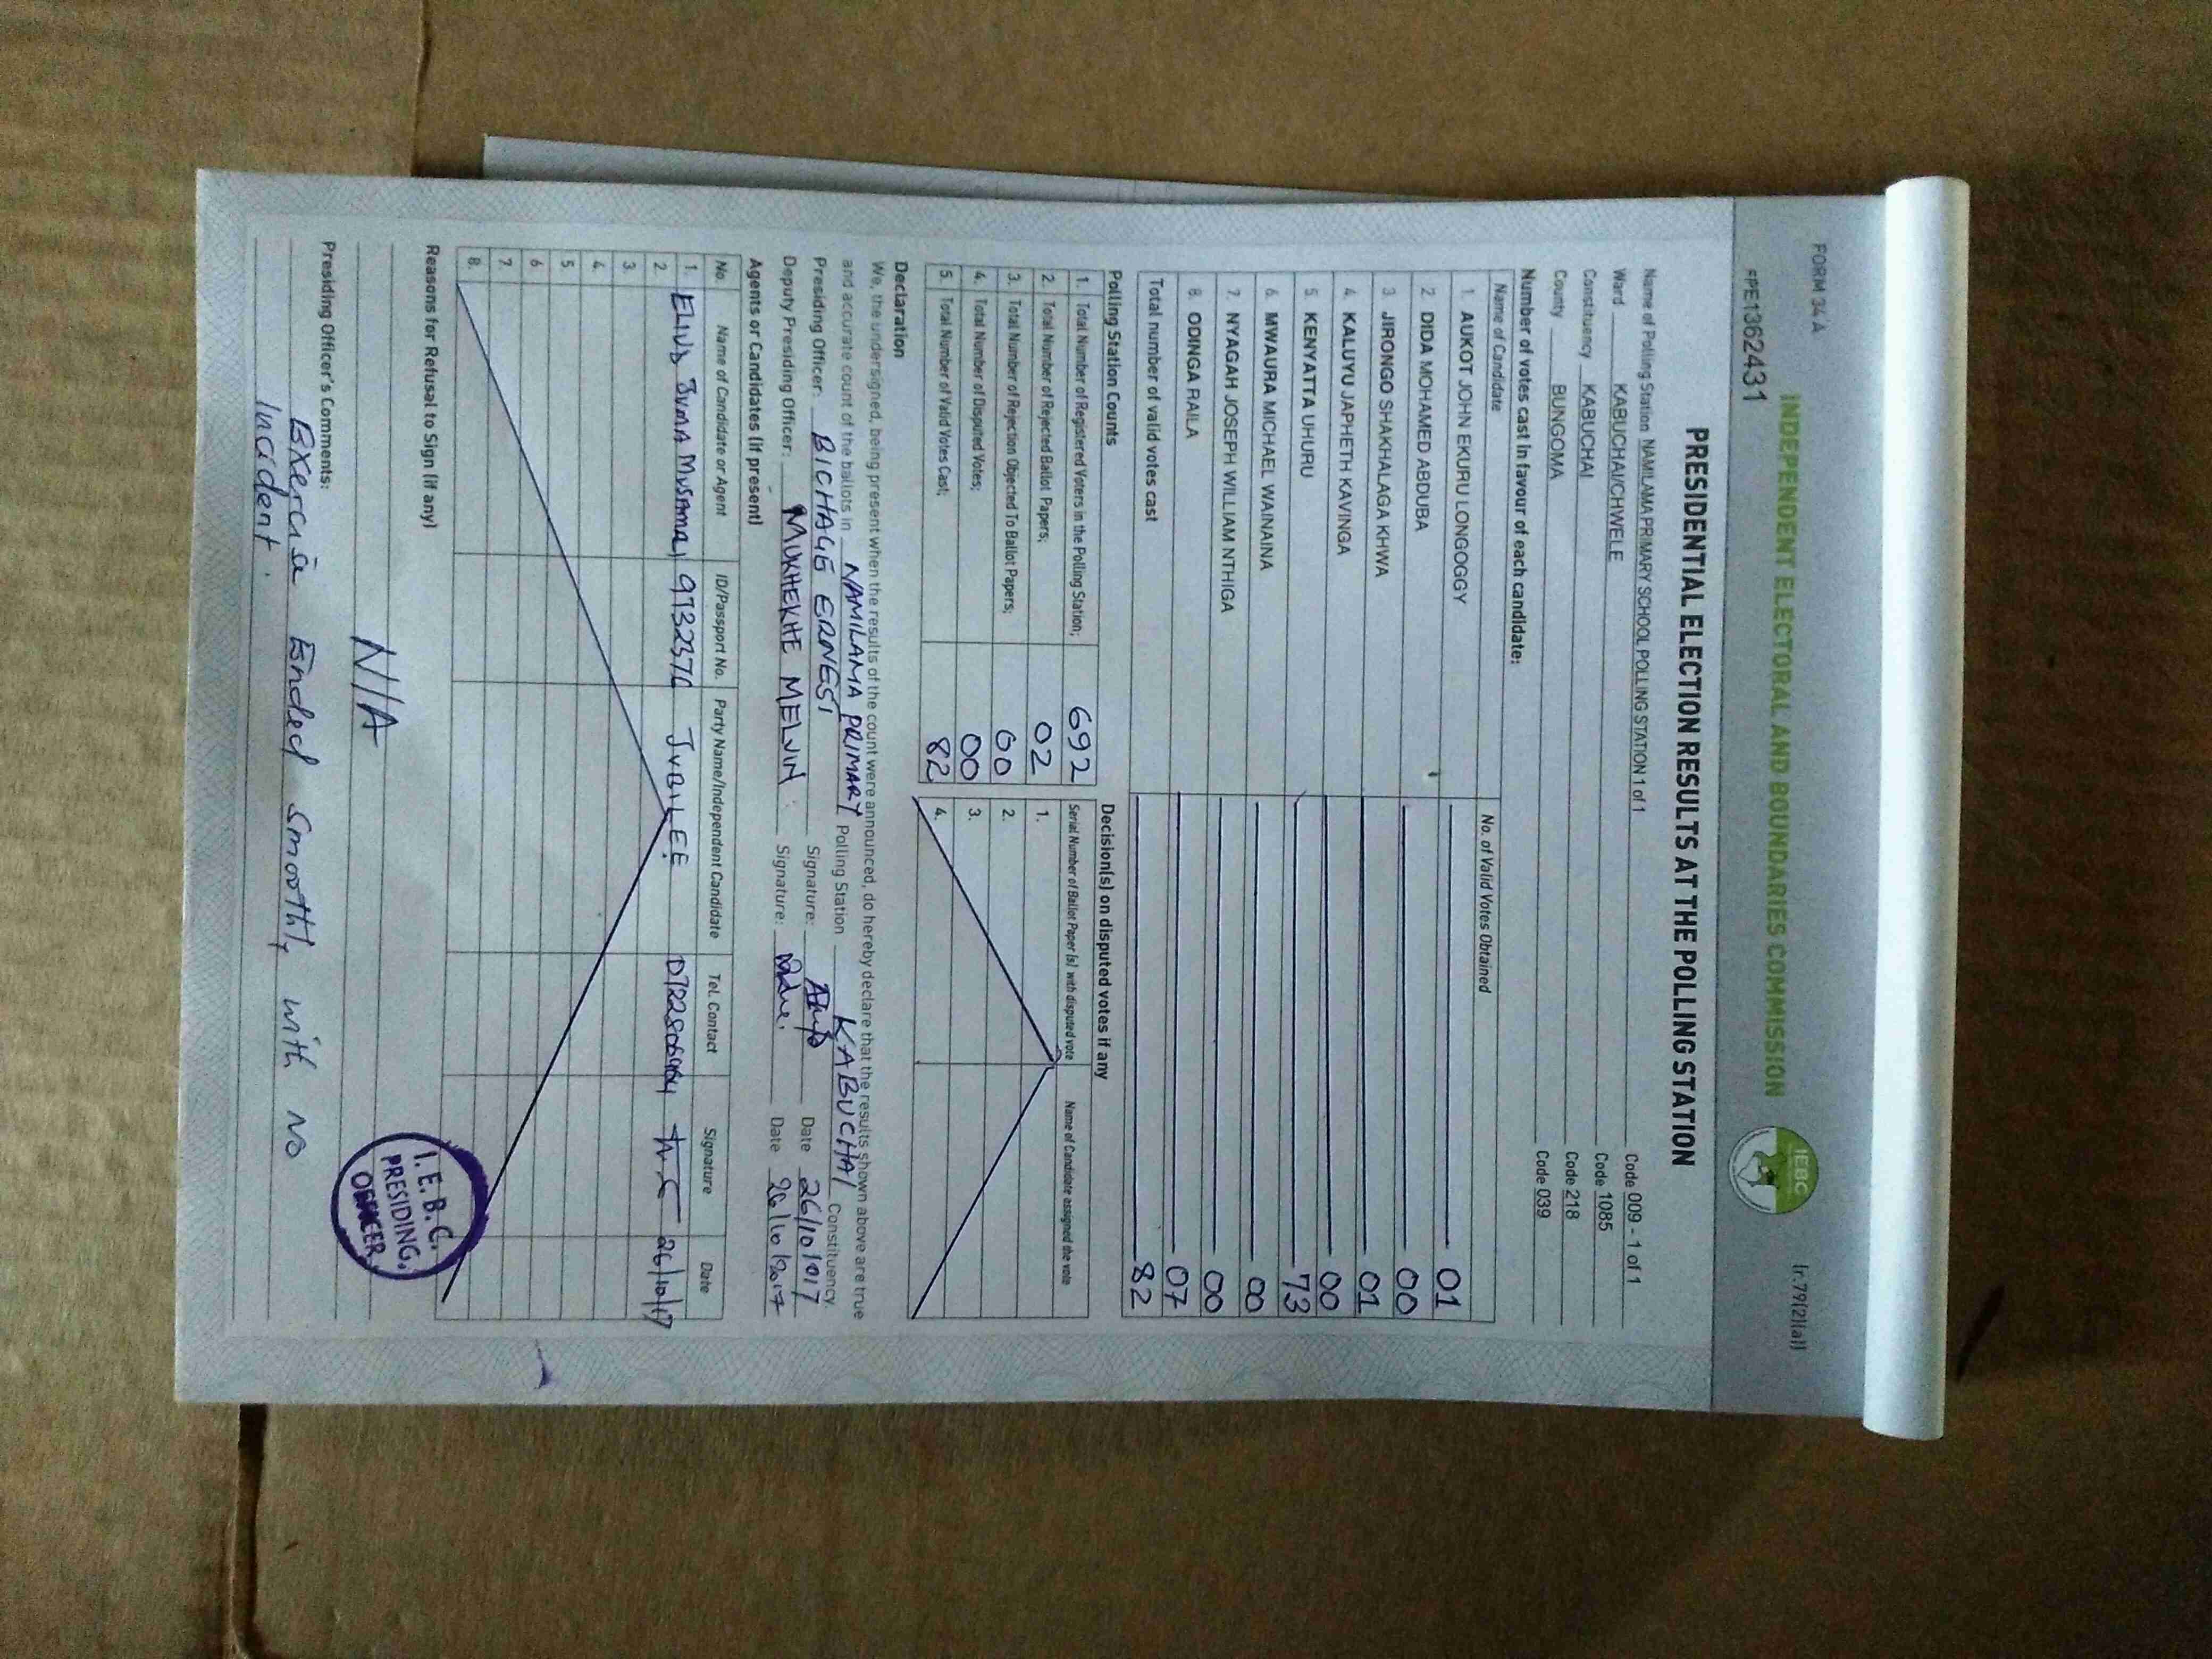 FORM 34 A
(r.79(2)(a))
INDEPENDENT ELECTORAL AND BOUNDARIES COMMISSION
IEBC
PE1362431
PRESIDENTIAL ELECTION RESULTS AT THE POLLING STATION
Name of Polling Station NAMILAMA PRIMARY SCHOOL POLLING STATION 1 of 1 Code 009 - 1 of 1
Ward KABUCHAI/CHWELE Code 1085
Constituency KABUCHAI Code 218
County BUNGOMA Code 039
Number of votes cast in favour of each candidate:
Name of Candidate No. of Valid Votes Obtained
1. AUKOT JOHN EKURU LONGOGGY 01
2. DIDA MOHAMED ABDUBA 00
3. JIRONGO SHAKHALAGA KHWA 01
4. KALUYU JAPHETH KAVINGA 00
5. KENYATTA UHURU 73
6. MWAURA MICHAEL WAINAINA 00
7. NYAGAH JOSEPH WILLIAM NTHIGA 00
8. ODINGA RAILA 07
Total number of valid votes cast 82
Polling Station Counts
1. Total Number of Registered Voters in the Polling Station; 692
2. Total Number of Rejected Ballot Papers; 02
3. Total Number of Rejection Objected To Ballot Papers; 00
4. Total Number of Disputed Votes; 00
5. Total Number of Valid Votes Cast; 82
Decision(s) on disputed votes if any
Serial Number of Ballot Paper (s) with disputed vote Name of Candidate assigned the vote
1.
2.
3.
4.
Declaration
We, the undersigned, being present when the results of the count were announced, do hereby declare that the results shown above are true
and accurate count of the ballots in NAMILAMA PRIMARY Polling Station KABUCHAI Constituency
Presiding Officer: BICHAGE ERNEST Signature: Date 26/10/017
Deputy Presiding Officer: MUKHEKHE MELVIN Signature: Date 26/10/2017
Agents or Candidates (if present)
No. Name of Candidate or Agent ID/Passport No. Party Name/Independent Candidate Tel. Contact Signature Date
1. JUMA JUBILEE 26/10/17
2
3.
4.
5
6
7.
8.
Reasons for Refusal to Sign (if any)
N/A
I.E.B.C.
PRESIDING.
OFFICER
Presiding Officer's Comments:
Exercise Ended smoothly with no
Incident.